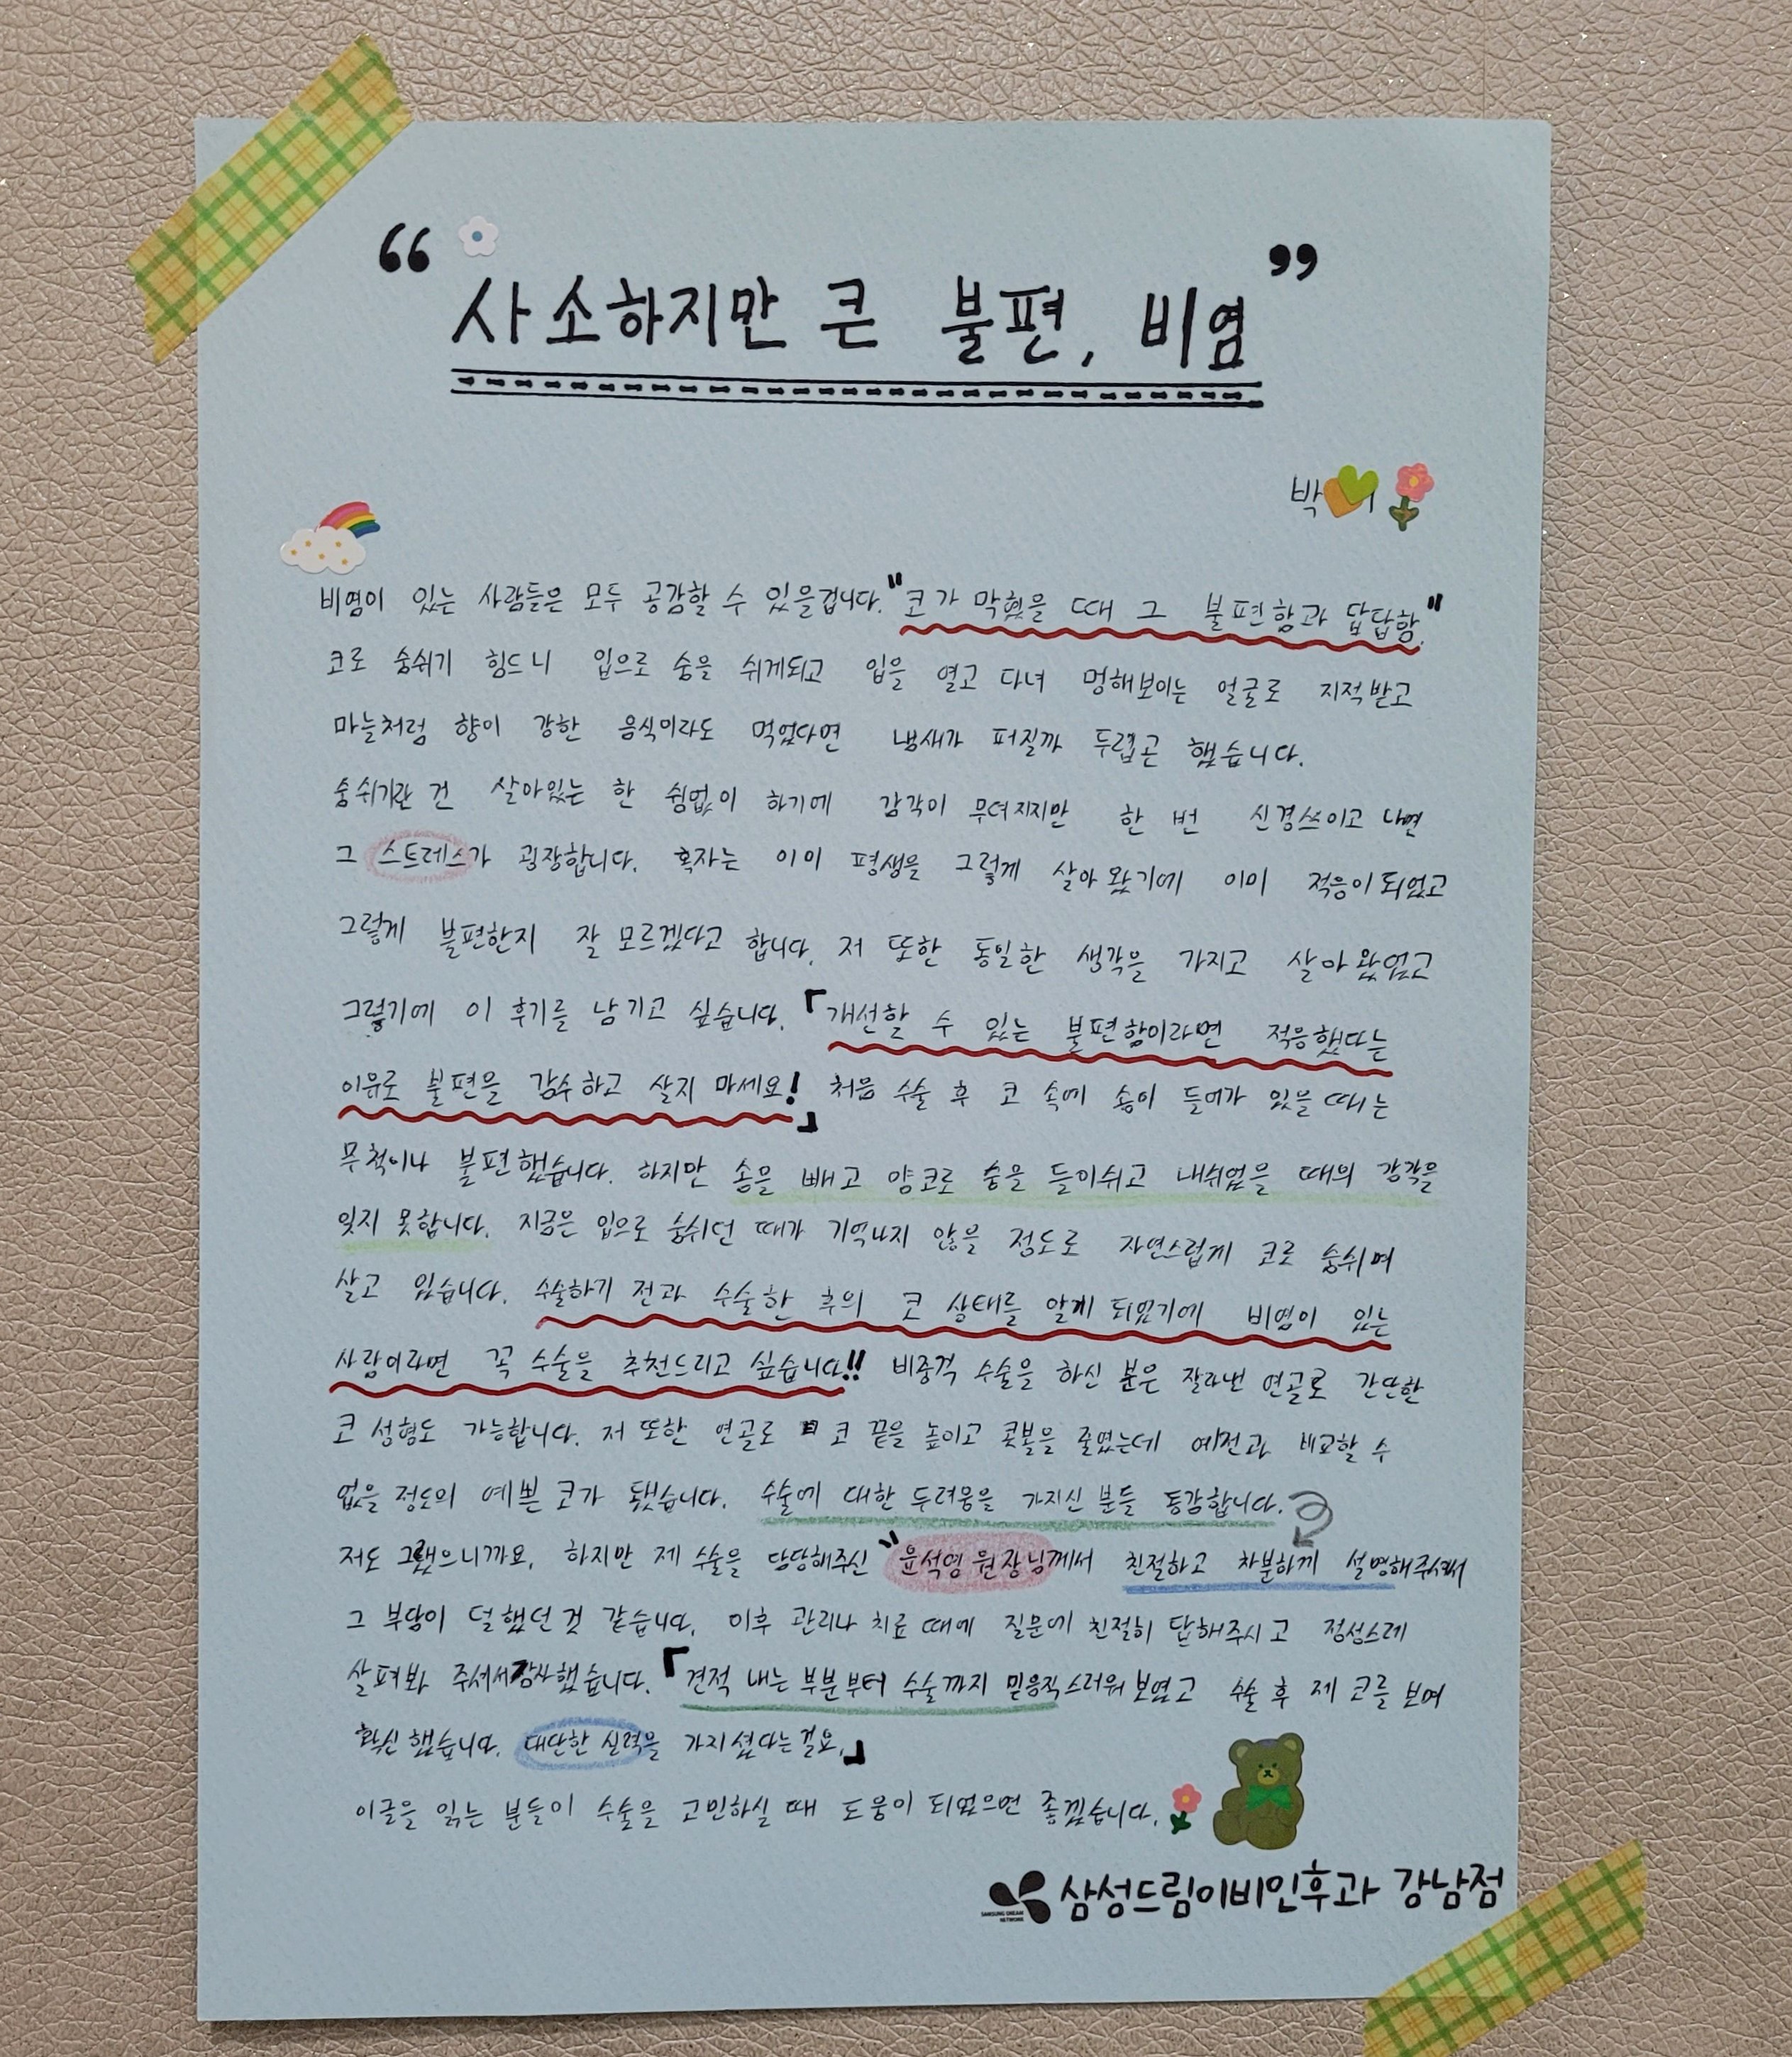 “ 사소하지만 큰 불편, 비염 ”
박
비염이 있는 사람들은 모두 공감할 수 있을겁니다. "코가 막혔을 때 그 불편함과 답답함."
코로 숨쉬기 힘드니 입으로 숨을 쉬게되고 입을 열고 다녀 멍해보이는 얼굴로 지적받고
마늘처럼 향이 강한 음식이라도 먹었다면 냄새가 퍼질까 두렵곤 했습니다.
숨쉬기란 건 살아있는 한 쉼없이 하기에 감각이 무뎌지지만 한 번 신경쓰이고 나면
그 스트레스가 굉장합니다. 혹자는 이미 평생을 그렇게 살아왔기에 이미 적응이 되었고
그렇게 불편한지 잘 모르겠다고 합니다. 저 또한 동일한 생각을 가지고 살아왔었고
그렇기에 이 후기를 남기고 싶습니다. 「개선할 수 있는 불편함이라면 적응했다는
이유로 불편을 감수하고 살지 마세요!」 처음 수술 후 코 속에 솜이 들어가 있을 때는
무척이나 불편했습니다. 하지만 솜을 빼고 양코로 숨을 들이쉬고 내쉬었을 때의 감각을
잊지 못합니다. 지금은 입으로 숨쉬던 때가 기억나지 않을 정도로 자연스럽게 코로 숨쉬며
살고 있습니다. 수술하기 전과 수술한 후의 코 상태를 알게 되었기에 비염이 있는
사람이라면 꼭 수술을 추천드리고 싶습니다!! 비중격 수술을 하신 분은 잘라낸 연골로 간단한
코 성형도 가능합니다. 저 또한 연골로 코 끝을 높이고 콧볼을 줄였는데 예전과 비교할 수
없을 정도의 예쁜 코가 됐습니다. 수술에 대한 두려움을 가지신 분들 통감합니다.
저도 그랬으니까요. 하지만 제 수술을 담당해주신 "윤석영 원장님께서 친절하고 차분하게 설명해주셔서
그 부담이 덜했던 것 같습니다. 이후 관리나 치료 때에 질문에 친절히 답해주시고 정성스레
살펴봐 주셔서 감사했습니다. 「견적 내는 부분부터 수술까지 믿음직스러워 보였고 수술 후 제 코를 보며
확신했습니다. 대단한 실력을 가지셨다는걸요.」
이글을 읽는 분들이 수술을 고민하실 때 도움이 되었으면 좋겠습니다.
SAMSUNG DREAM NETWORK 삼성드림이비인후과 강남점